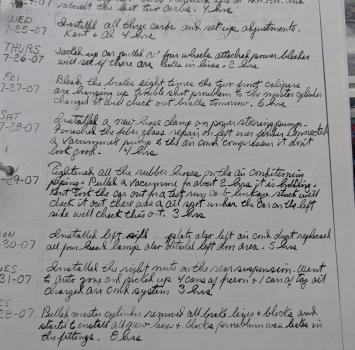 rebuilt the last two carbs. 4 hrs
WED
7-25-07 Installed all three carbs and set up adjustments.
Kent + Al 4 hrs
THURS
7-26-07 Jacked up car pulled 4 wheels attached power bleeder
will see if there are leaks in lines. 2 hrs
FRI
7-27-07 Bleed the brakes eight times the two front calipers
are hanging up trouble shot problem to the master cylinder
changed it will check out brakes tomorrow. 6 hrs
SAT
7-28-07 Installed a new hose clamp on power steering pump.
Finished the fiber glass repair on left over fender connected
a vacuum pump to the air con compressor it don't
look good. 4 hrs
-29-07 Tightened all the rubber hoses on the air conditioning
piping. Pulled a vacuum for about 2 hrs it is holding.
the car out for test run
check it out, there was a oil spot under the car on the left
side will check this out. 3 hrs
MON
-30-07 Installed left side also left air con duct replaced
all four head lamps also left door area. 5 hrs
UES
31-07 Installed the right nuts on the rear suspension. Went
to auto zone and picked up 4 cans of freon + 1 can of oil
charged air con system 3 hrs
WES
-07 Pulled master cylinder removed all brake lines + blocks and
started to install all new lines + blocks problem was leaks in
the fittings. 8 hrs